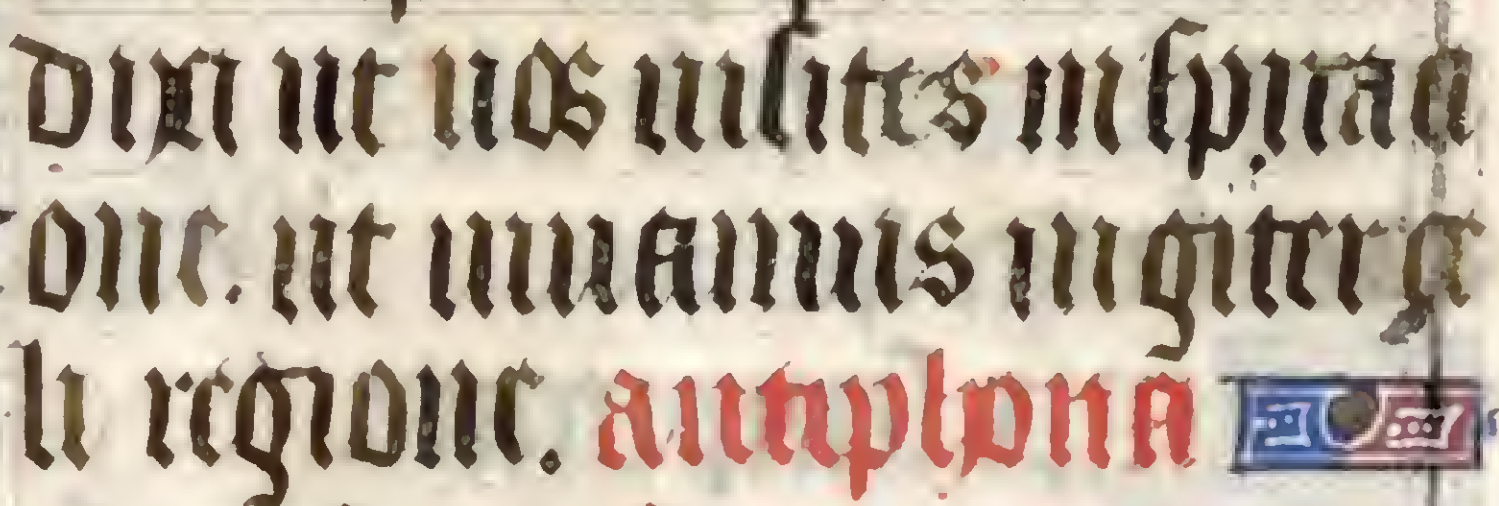 dixi ut nos uisites inspirati
one. ut uiuamus in
li regione. antiphona